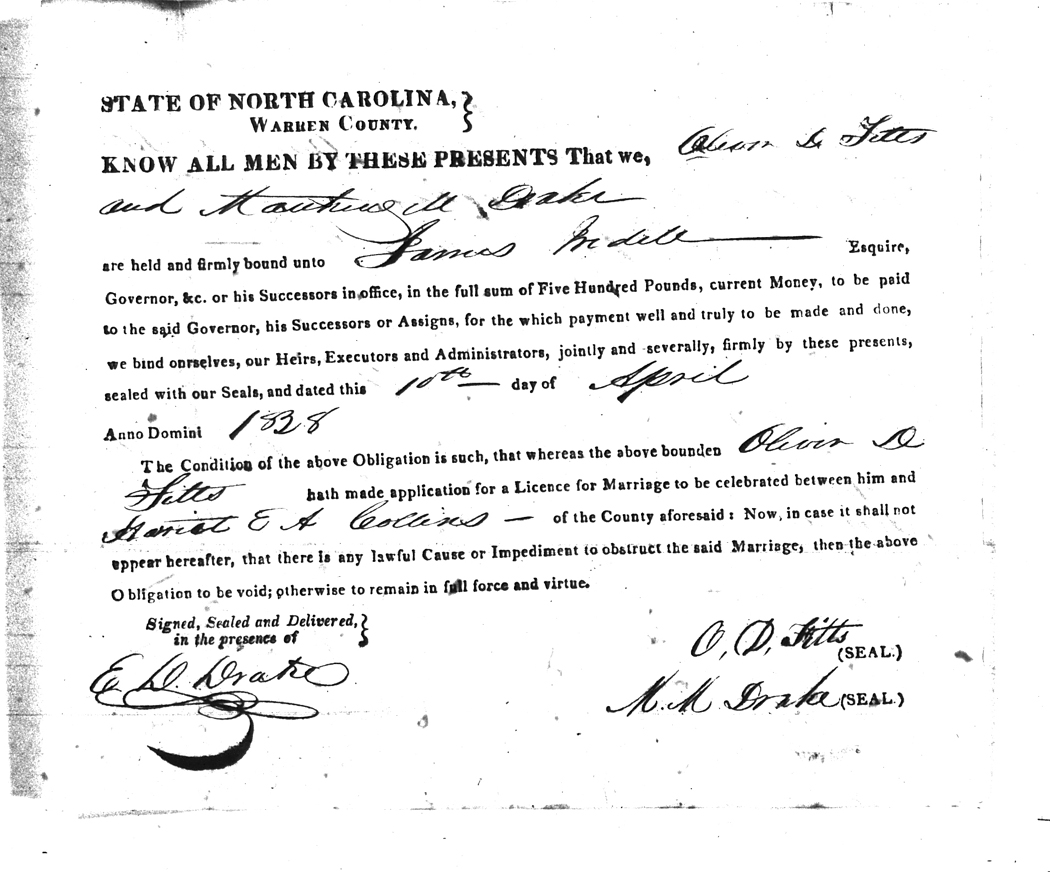 STATE OF NORTH CAROLINA,
WARREN COUNTY.
KNOW ALL MEN BY THESE PRESENTS That we, Oliver D Fitts
and M. M Drake
are held and firmly bound unto James Iredell Esquire,
Governor, &c. or his Successors in office, in the full sum of Five Hundred Pounds, current Money, to be paid
to the said Governor, his Successors or Assigns, for the which payment well and truly to be made and done,
we bind ourselves, our Heirs, Executors and Administrators, jointly and severally, firmly by these presents,
sealed with our Seals, and dated this 10th day of April
Anno Domini 1828
The Condition of the above Obligation is such, that whereas the above bounden Oliver D
Fitts hath made application for a Licence for Marriage to be celebrated between him and
Harriet E A Collins — of the County aforesaid: Now, in case it shall not
appear hereafter, that there is any lawful Cause or Impediment to obstruct the said Marriage, then the above
Obligation to be void; otherwise to remain in full force and virtue.
Signed, Sealed and Delivered,
in the presence of
E D. Drake
O, D, Fitts (SEAL.)
M. M Drake (SEAL.)